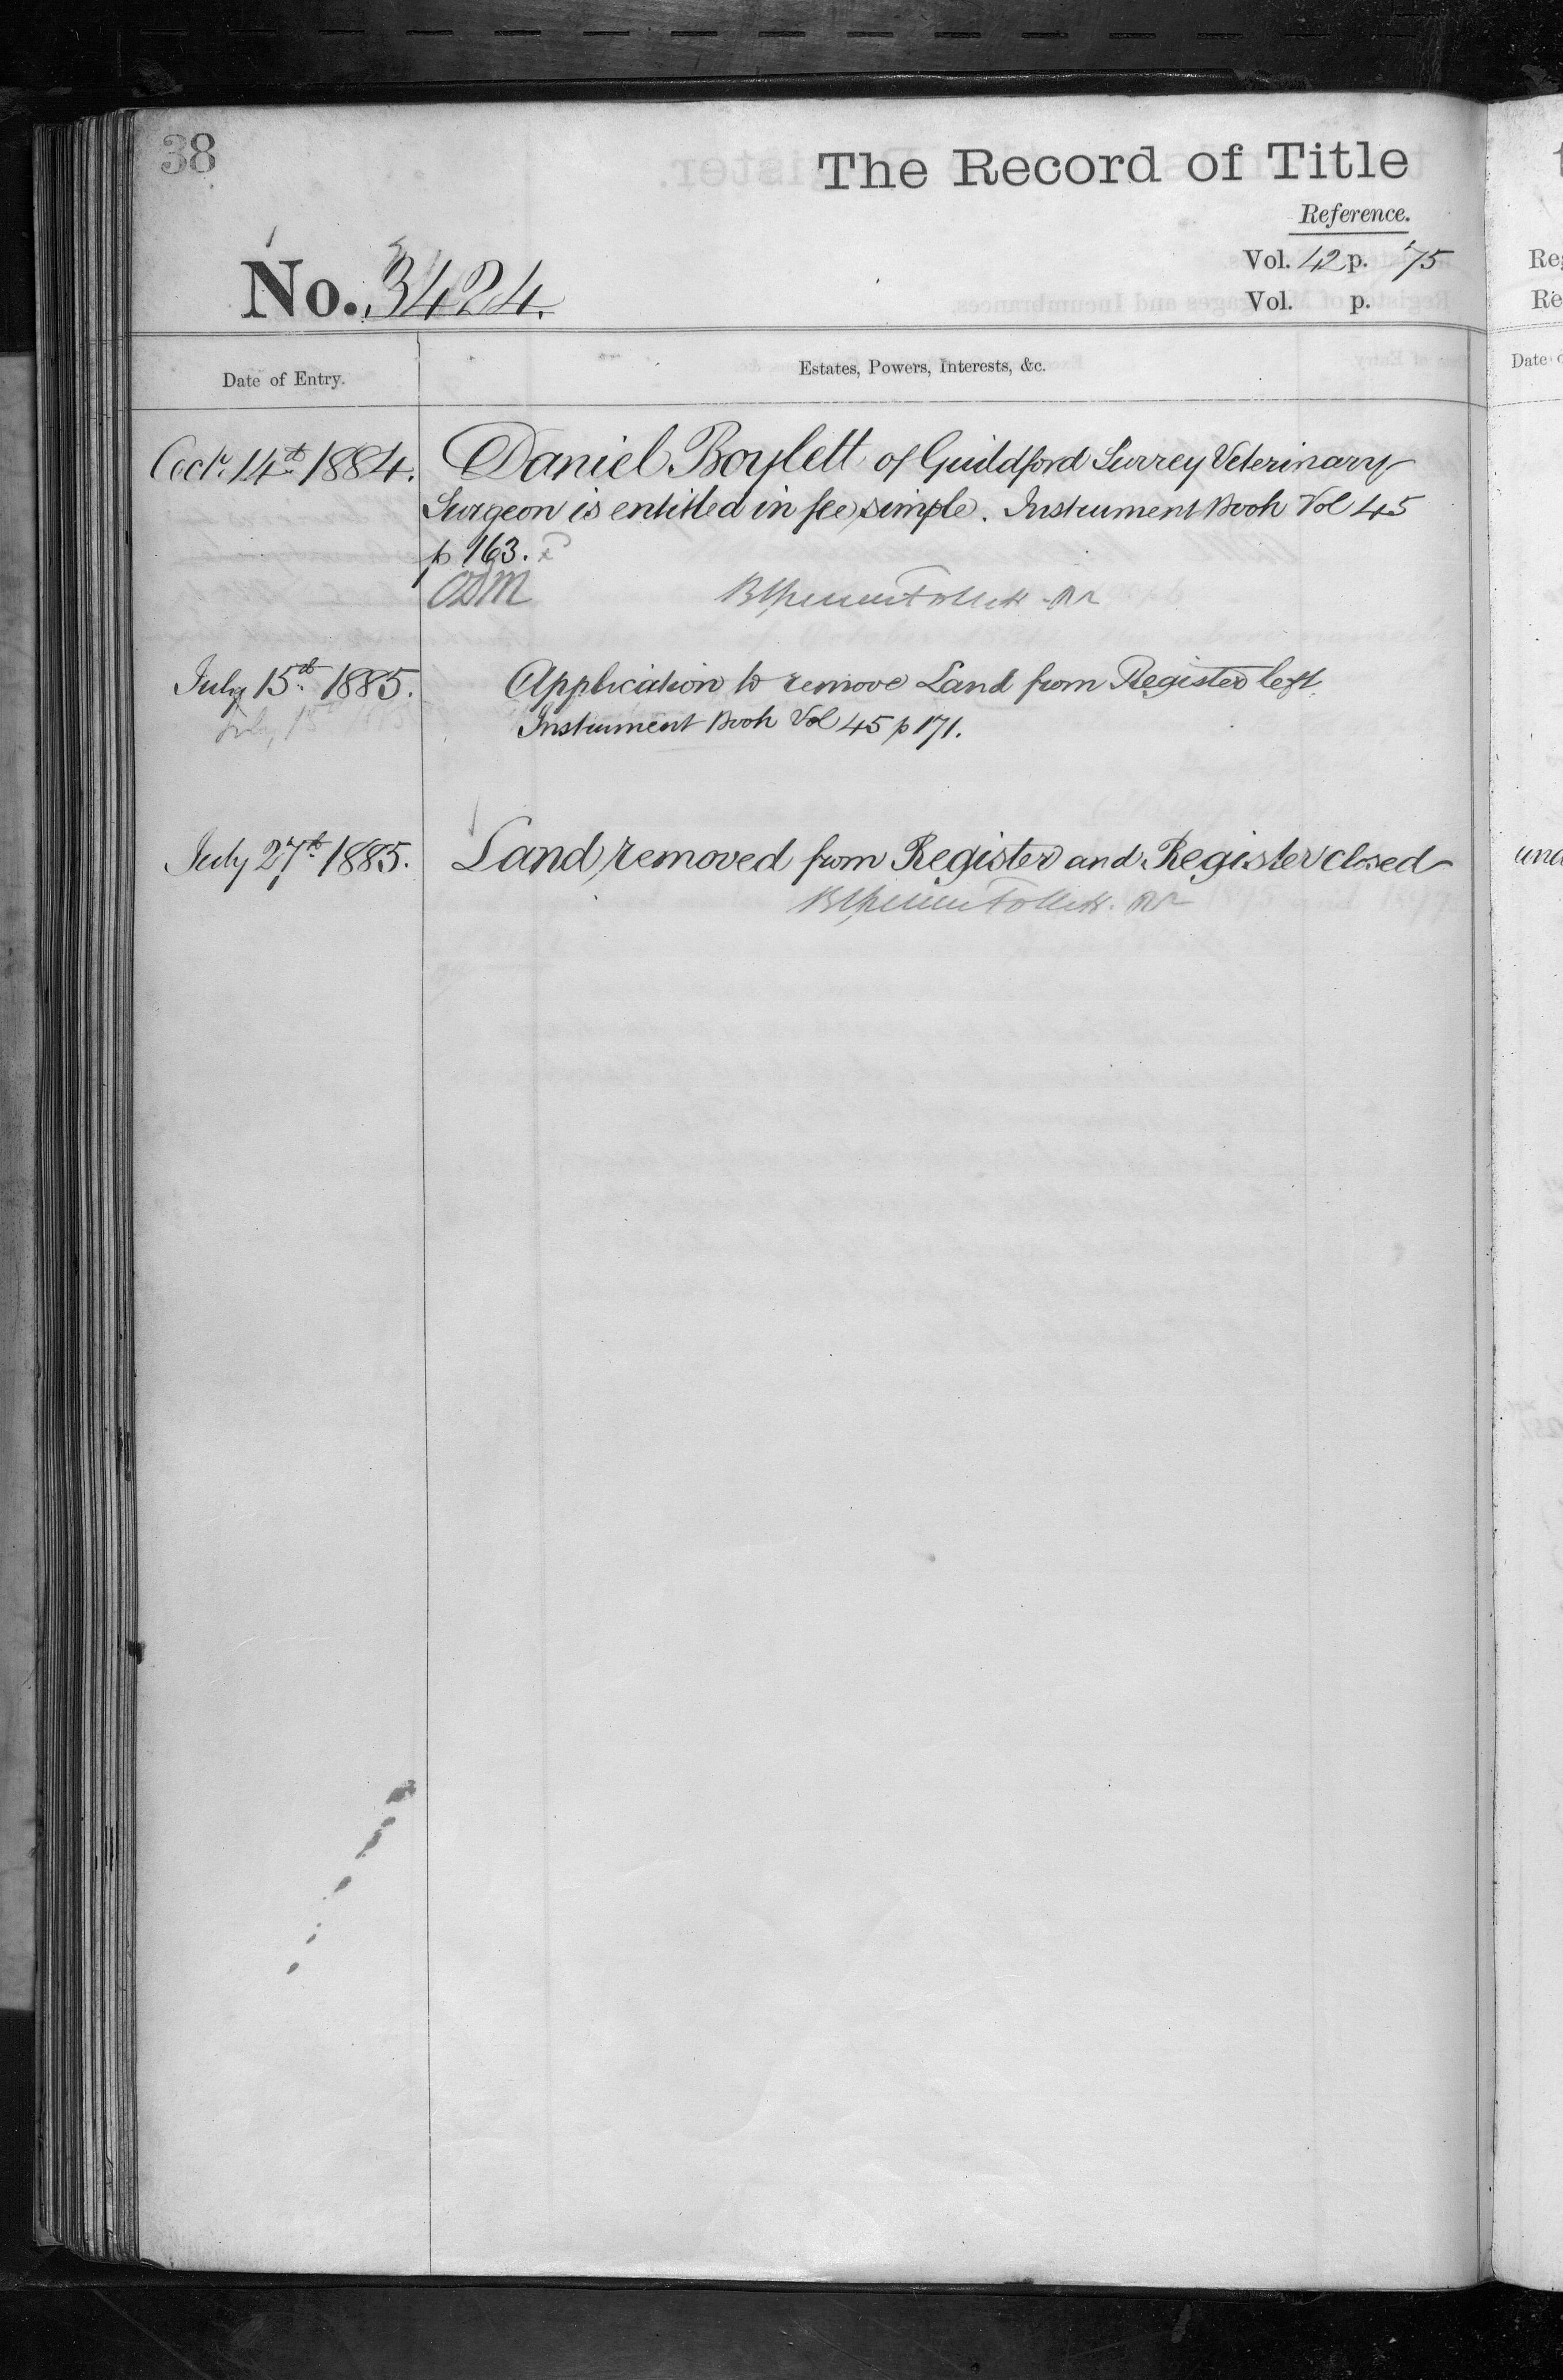 38
The Record of Title
Reference.
Vol. 42 p. 75
No. 3424.
Vol. p.
Date of Entry.
Estates, Powers, Interests, &c.
Octr. 14th 1884.
Daniel Boylett of Guildford Surrey Veterinary
Surgeon is entitled in fee simple. Instrument Book Vol 45
p 163.
July 15th 1885.
Application to remove Land from Register left
Instrument Book Vol 45 p 171.
July 15th 1885
July 27th 1885.
Land removed from Register and Register closed